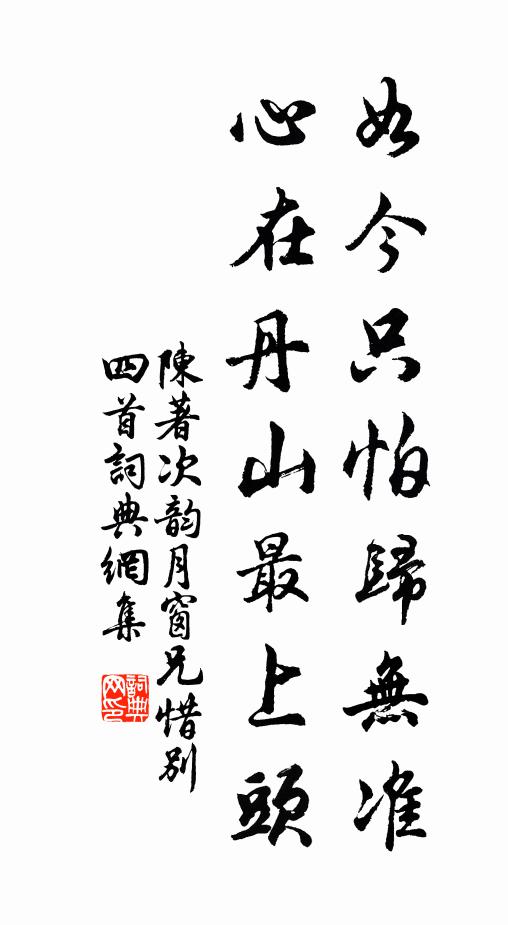 如今只怕歸無准
心在丹山最上頭
陳著次韵月窗兄惜别
四首詞典網集
詞典网印